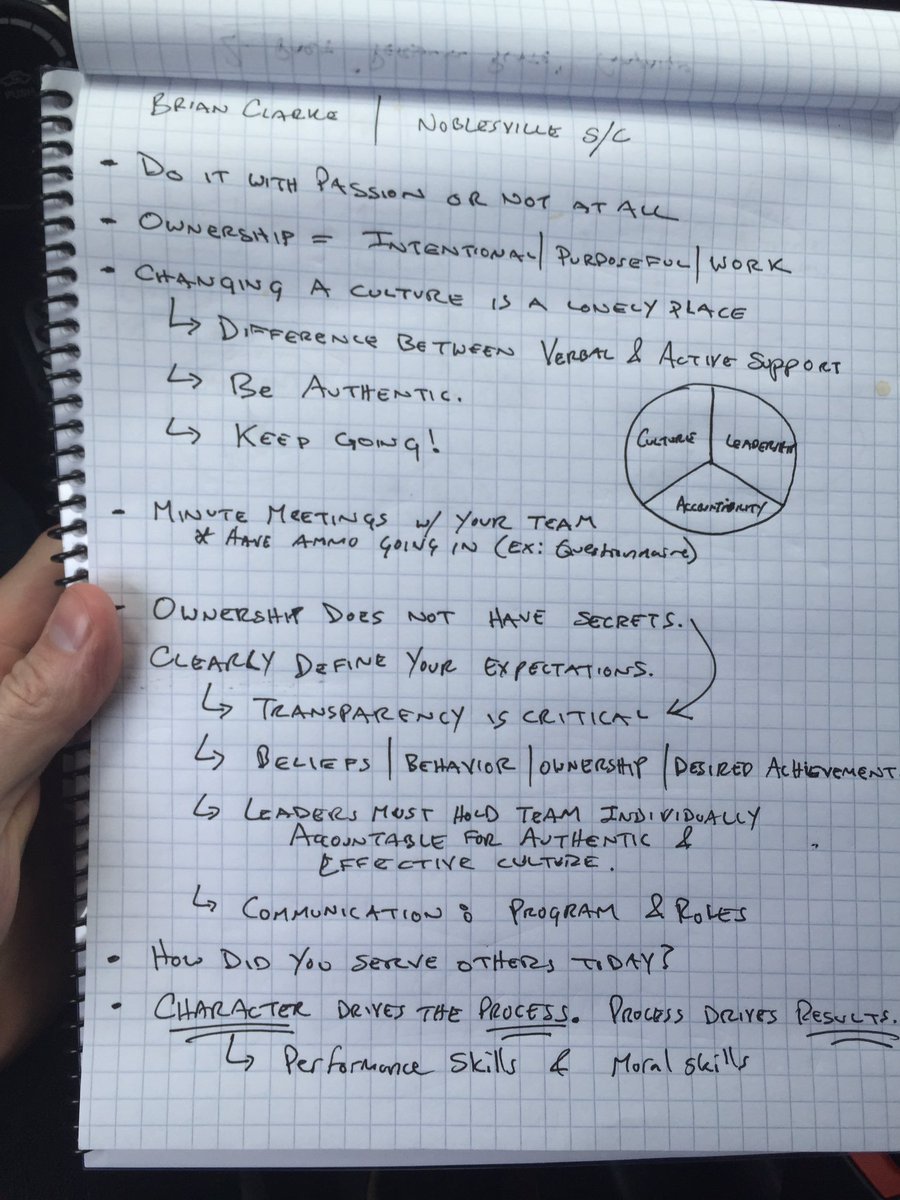 BRIAN CLARKE | NOBLESVILLE S/C
- DO IT WITH PASSION OR NOT AT ALL
- OWNERSHIP = INTENTIONAL | PURPOSEFUL | WORK
- CHANGING A CULTURE IS A LONELY PLACE
↳ DIFFERENCE BETWEEN VERBAL & ACTIVE SUPPORT
↳ BE AUTHENTIC.
↳ KEEP GOING!
CULTURE LEADERSHIP
ACCOUNTABILITY
- MINUTE MEETINGS W/ YOUR TEAM
* HAVE AMMO GOING IN (EX: Questionnaire)
- OWNERSHIP DOES NOT HAVE SECRETS.
CLEARLY DEFINE YOUR EXPECTATIONS.
↳ TRANSPARENCY IS CRITICAL
↳ BELIEFS | BEHAVIOR | OWNERSHIP | DESIRED ACHIEVEMENT
↳ LEADERS MUST HOLD TEAM INDIVIDUALLY
ACCOUNTABLE FOR AUTHENTIC &
EFFECTIVE CULTURE.
↳ COMMUNICATION: PROGRAM & ROLES
• HOW DID YOU SERVE OTHERS TODAY?
• CHARACTER DRIVES THE PROCESS. PROCESS DRIVES RESULTS.
↳ Performance Skills & Moral skills